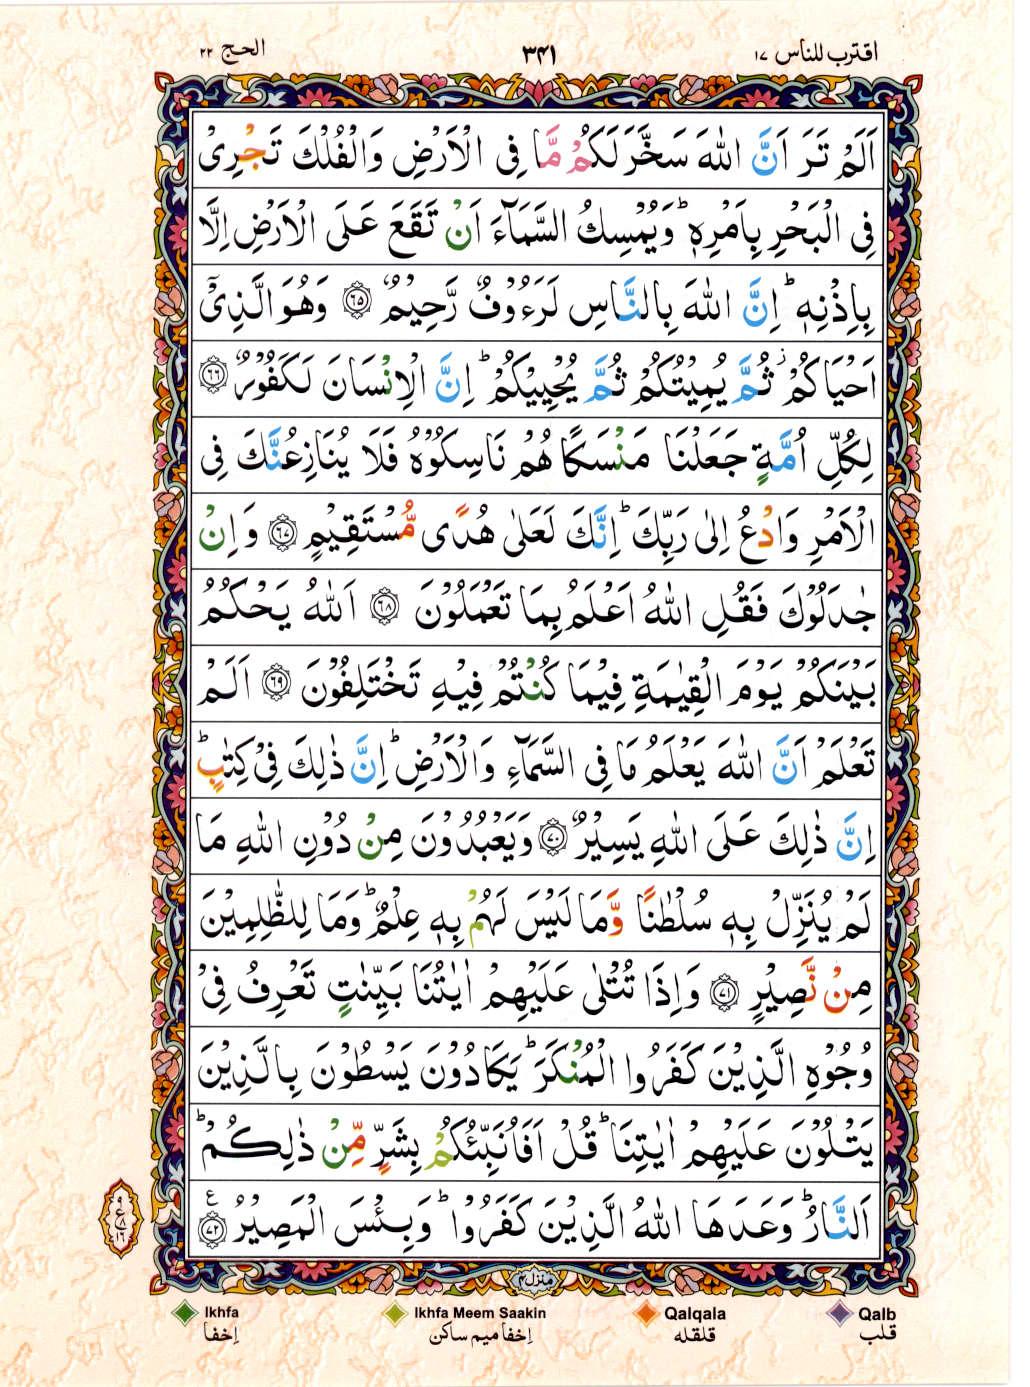 اقترب للناس ١٧
٣٤١
الحج ٢٢
اَلَمْ تَرَ اَنَّ اللّٰهَ سَخَّرَ لَكُمْ مَّا فِی الْاَرْضِ وَالْفُلْكَ تَجْرِیْ
فِی الْبَحْرِ بِاَمْرِهٖ ؕ وَیُمْسِكُ السَّمَآءَ اَنْ تَقَعَ عَلَی الْاَرْضِ اِلَّا
بِاِذْنِهٖ ؕ اِنَّ اللّٰهَ بِالنَّاسِ لَرَءُوْفٌ رَّحِیْمٌ ﴿٦٥﴾ وَهُوَ الَّذِیْۤ
اَحْیَاكُمْ ؗ ثُمَّ یُمِیْتُكُمْ ثُمَّ یُحْیِیْكُمْ ؕ اِنَّ الْاِنْسَانَ لَكَفُوْرٌ ﴿٦٦﴾
لِكُلِّ اُمَّةٍ جَعَلْنَا مَنْسَكًا هُمْ نَاسِكُوْهُ فَلَا یُنَازِعُنَّكَ فِی
الْاَمْرِ وَادْعُ اِلٰی رَبِّكَ ؕ اِنَّكَ لَعَلٰی هُدًی مُّسْتَقِیْمٍ ﴿٦٧﴾ وَاِنْ
جٰدَلُوْكَ فَقُلِ اللّٰهُ اَعْلَمُ بِمَا تَعْمَلُوْنَ ﴿٦٨﴾ اَللّٰهُ یَحْكُمُ
بَیْنَكُمْ یَوْمَ الْقِیٰمَةِ فِیْمَا كُنْتُمْ فِیْهِ تَخْتَلِفُوْنَ ﴿٦٩﴾ اَلَمْ
تَعْلَمْ اَنَّ اللّٰهَ یَعْلَمُ مَا فِی السَّمَآءِ وَالْاَرْضِ ؕ اِنَّ ذٰلِكَ فِیْ كِتٰبٍ ؕ
اِنَّ ذٰلِكَ عَلَی اللّٰهِ یَسِیْرٌ ﴿٧٠﴾ وَیَعْبُدُوْنَ مِنْ دُوْنِ اللّٰهِ مَا
لَمْ یُنَزِّلْ بِهٖ سُلْطٰنًا وَّمَا لَیْسَ لَهُمْ بِهٖ عِلْمٌ ؕ وَمَا لِلظّٰلِمِیْنَ
مِنْ نَّصِیْرٍ ﴿٧١﴾ وَاِذَا تُتْلٰی عَلَیْهِمْ اٰیٰتُنَا بَیِّنٰتٍ تَعْرِفُ فِیْ
وُجُوْهِ الَّذِیْنَ كَفَرُوا الْمُنْكَرَ ؕ یَكَادُوْنَ یَسْطُوْنَ بِالَّذِیْنَ
یَتْلُوْنَ عَلَیْهِمْ اٰیٰتِنَا ؕ قُلْ اَفَاُنَبِّئُكُمْ بِشَرٍّ مِّنْ ذٰلِكُمْ ؕ
اَلنَّارُ ؕ وَعَدَهَا اللّٰهُ الَّذِیْنَ كَفَرُوْا ؕ وَبِئْسَ الْمَصِیْرُ ﴿٧٢﴾ ع
٩
ع ٨
١٦
منزل ٤
Ikhfa
اِخفا
Ikhfa Meem Saakin
اِخفا میم ساکن
Qalqala
قلقله
Qalb
قلب